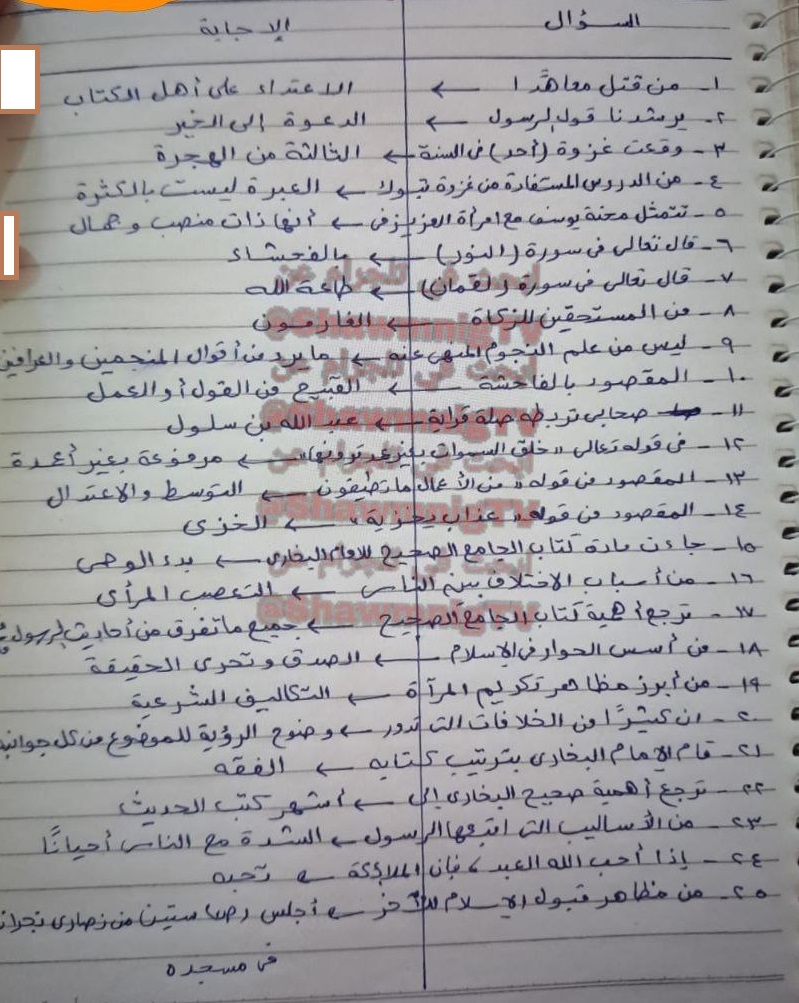 السؤال الإجابة
١- من قتل معاهدًا ← الاعتداء على أهل الكتاب
٢- يرشدنا قول الرسول ← الدعوة إلى الخير
٣- وقعت غزوة (أحد) فى السنة ← الثالثة من الهجرة
٤- من الدروس المستفادة من غزوة تبوك ← العبرة ليست بالكثرة
٥- تتمثل محنة يوسف مع امرأة العزيز فى ← أنها ذات منصب وجمال
٦- قال تعالى فى سورة (النور) ← بالفحشاء
٧- قال تعالى فى سورة (لقمان) ← طاعة الله
٨- من المستحقين للزكاة ← الغارمون
٩- ليس من علم النجوم المنهى عنه ← ما يرد من أقوال المنجمين والعرافين
١٠- المقصود بالفاحشة ← القبيح من القول أو العمل
١١- صحابى تربطه صلة قرابة ← عبد الله بن سلول
١٢- فى قوله تعالى "خلق السموات بغير عمد ترونها" ← مرفوعة بغير أعمدة
١٣- المقصود من قوله "من الأعمال ما تطيقون ← التوسط والاعتدال
١٤- المقصود من قوله "عذاب يخزيه" ← الخزى
١٥- جاءت مادة كتاب الجامع الصحيح للامام البخارى ← بدء الوحى
١٦- من أسباب الاختلاف بين الناس ← التعصب للرأى
١٧- ترجع أهمية كتاب الجامع الصحيح ← جميع ما تفرق من أحاديث الرسول
١٨- من أسس الحوار فى الإسلام ← الصدق وتحرى الحقيقة
١٩- من أبرز مظاهر تكريم المرآة ← التكاليف الشرعية
٢٠- ان كثيرًا من الخلافات التى تدور ← وضوح الرؤية للموضوع من كل جوانبه
٢١- قام الإمام البخارى بترتيب كتابه ← الفقه
٢٢- ترجع أهمية صحيح البخارى إلى ← أشهر كتب الحديث
٢٣- من الأساليب التى اتبعها الرسول ← الشدة مع الناس أحيانًا
٢٤- إذا أحب الله العبد، فإن الملائكة ← تحبه
٢٥- من مظاهر قبول الإسلام للآخر ← أجلس ستين من نصارى نجران
فى مسجده
ابحث في تلجرام عن
@ShawmnigTV
ابحث في تلجرام عن
@ShawmnigTV
ابحث في تلجرام عن
@ShawmnigTV
ابحث في تلجرام عن
@ShawmnigTV